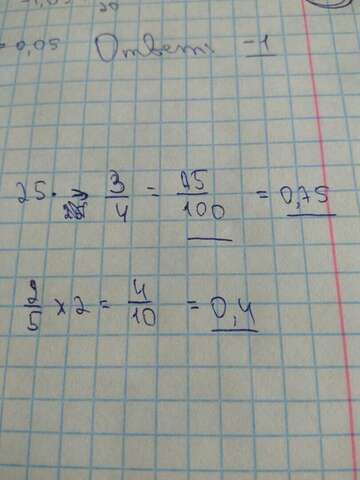 = 0,05 Ответ: -1
25 · 3/4 = 75/100 = 0,75
2/5 x 2 = 4/10 = 0,4